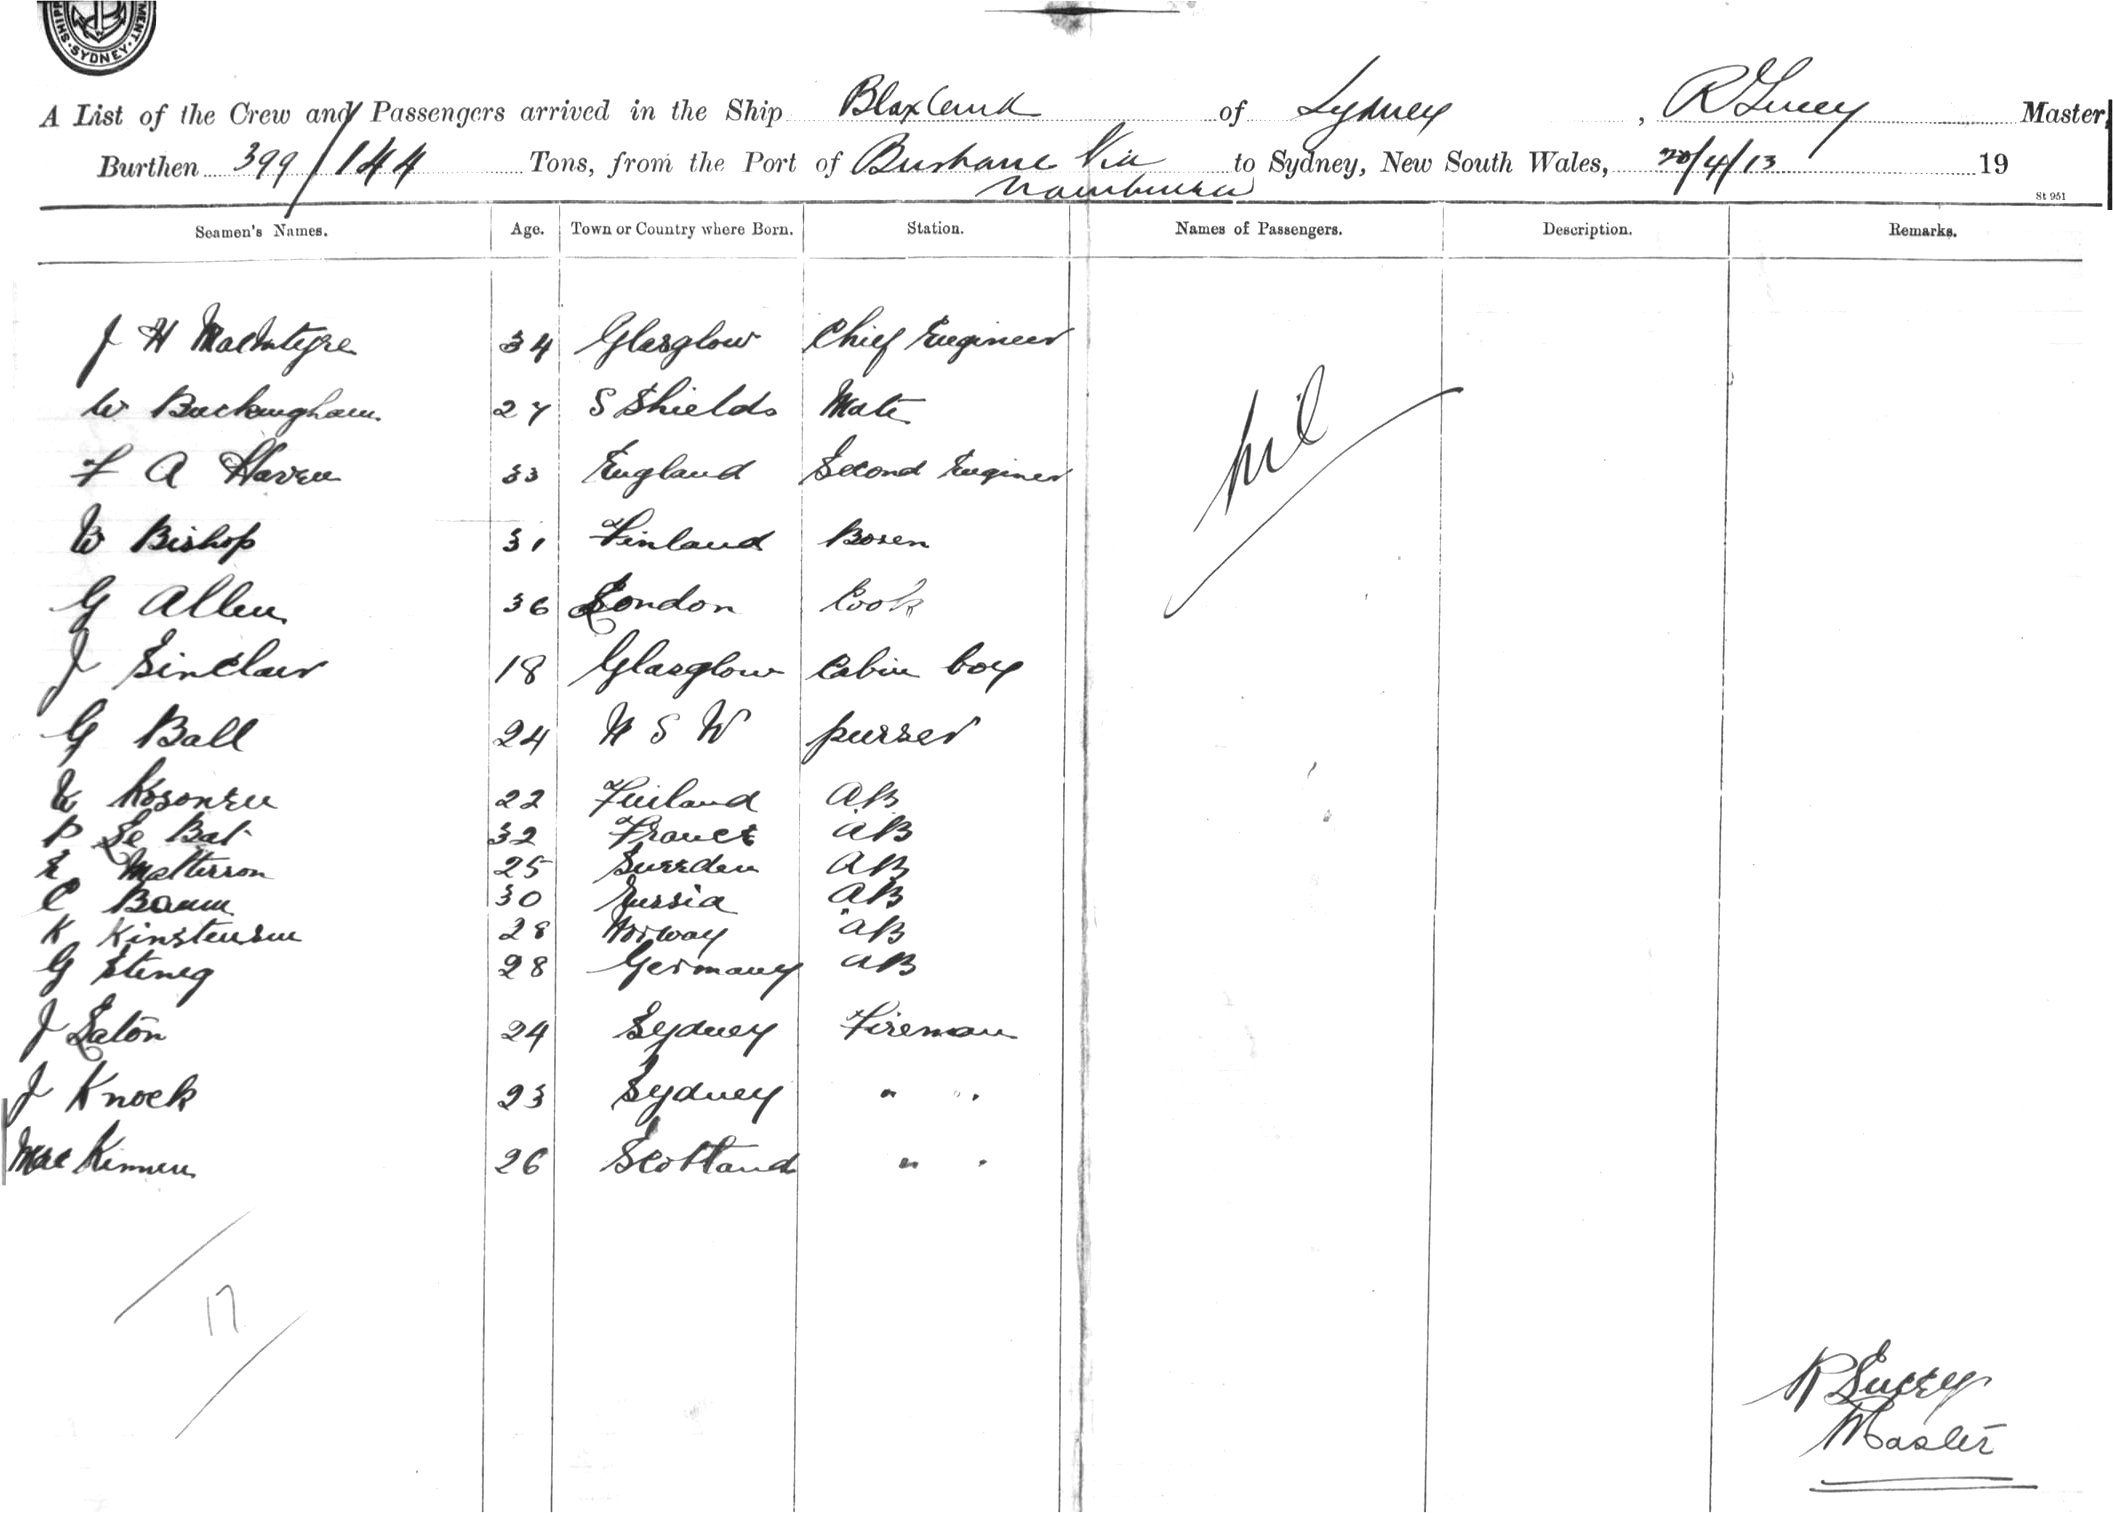 SHIPP MENT · SYDNEY ·
A List of the Crew and Passengers arrived in the Ship Blaxland of Sydney, R Lucey Master,
Burthen 399/144 Tons, from the Port of Brisbane Via Nambucca to Sydney, New South Wales, 20/4/13 19
St 951
Seamen's Names. Age. Town or Country where Born. Station. Names of Passengers. Description. Remarks.
J H MacIntyre 34 Glasglow Chief Engineer
W Buckingham 27 S Shields Mate
nil
F A Haven 33 England Second Enginer
W Bishop 31 Finland Bosen
G Allen 36 London Cook
J Sinclair 18 Glasglow Cabin boy
G Ball 24 N S W purser
Kosonen 22 Finland AB
P Le Bat 32 France AB
E Matterson 25 Sweeden AB
C Baum 30 Russia AB
K Kinstensen 28 Norway AB
G Steneg 28 Germany AB
J Eaton 24 Sydney Fireman
J Knock 23 Sydney " "
MacKinnen 26 Scottand " "
17
R Lucey
Master